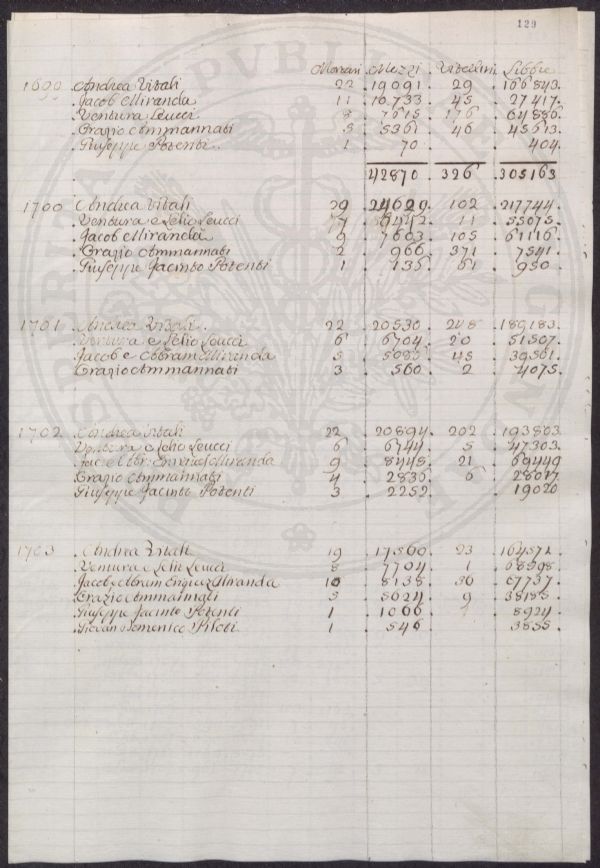 129
Mezzi . Vitellini . Libbre
1699 . Andrea Vitali 22 . 19091 . 29 . 166843.
. Jacob Miranda 11 . 10733 . 45 . 27417.
. Ventura Leucci 8 . 7615 . 176 . 64886.
. Orazio Ammannati 5 . 5361 . 46 . 45613.
. Giuseppe Potenti 1 . 70 . 404.
42870 . 326 . 305163
1700 . Andrea Vitali 29 . 24629 . 102 . 217744.
. Ventura e Lelio Leucci 9442 . 11 . 55075.
. Jacob Miranda 9 . 7603 . 105 . 61116
. Orazio Ammannati 2 . 966 . 371 . 7541
. Giuseppe Jacinto Potenti 1 . 135 . 61 . 950.
1701 . Andrea Vitali . 22 . 20530 . 189183.
. Ventura e Lelio Leucci 6 . 6704 . 20 . 51507.
. Jacob e Abram Miranda 5 . 5085 . 45 . 39561.
. Orazio Ammannati 3 . 560 . 2 . 4075.
1702 . Andrea Vitali 22 . 20894 . 202 . 193803
. Ventura e Lelio Leucci 6 . 6744 . 5 . 47303.
Miranda 9 . 8448 . 21 . 69449
. Orazio Ammannati 4 . 2836 . 6 . 28017
. Giuseppe Jacinto Potenti 3 . 2252 . 19020
1703 . Andrea Vitali 19 . 17560 . 23 . 164572.
. Ventura e Lelio Leucci 8 . 7704 . 1 . 68598.
. Jacob e Abram Enriquez Miranda 10 . 8138 . 36 . 67737.
. Orazio Ammannati 5 . 5024 . 9 . 38185.
. Giuseppe Jacinto Potenti 1 . 1066 . 8924
. Giovan Domenico Piloti 1 . 546 . 3855.